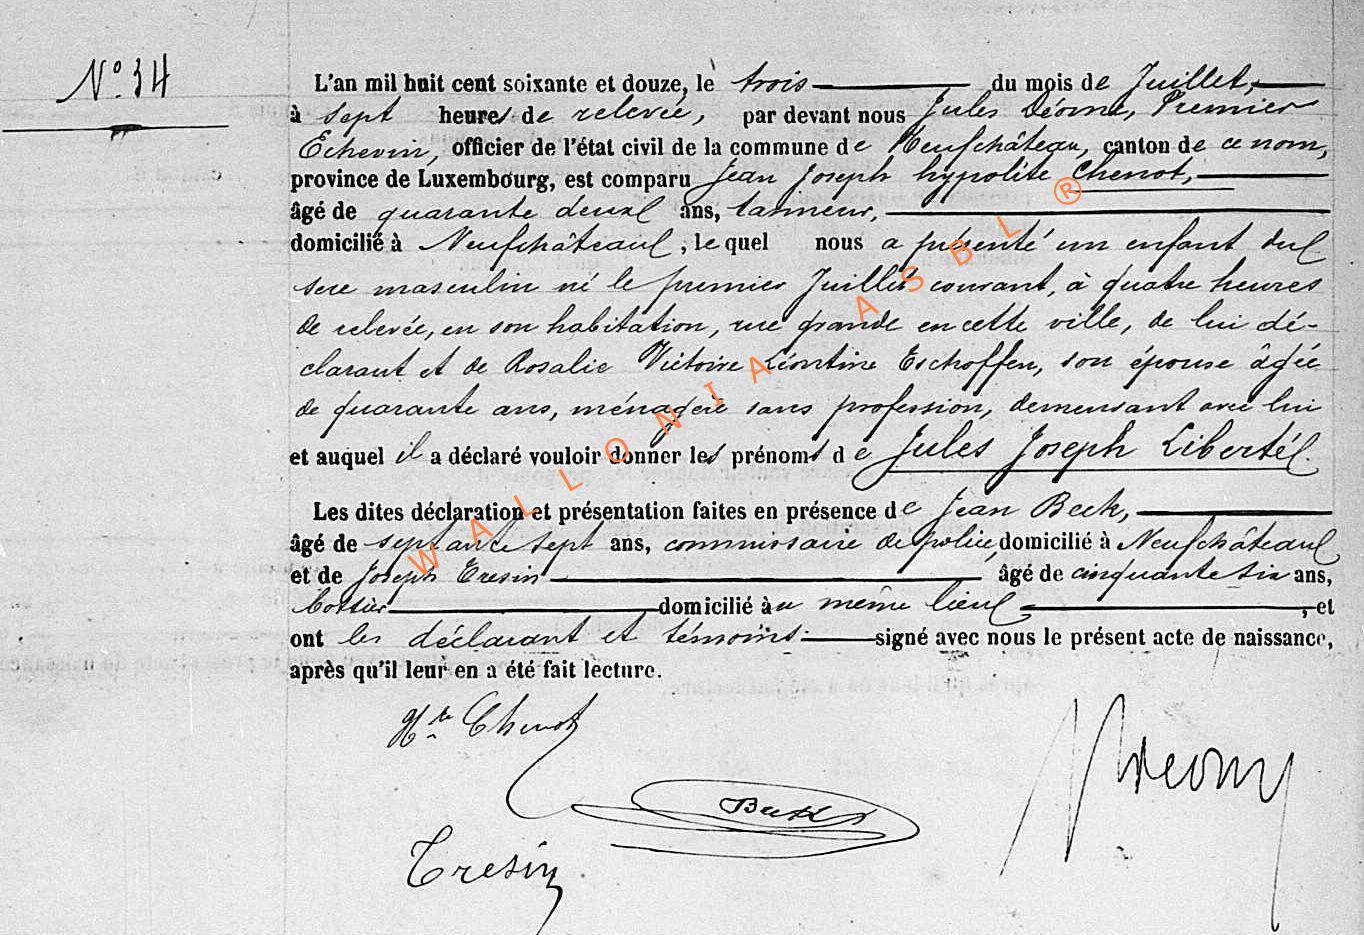 N° 34
L'an mil huit cent soixante et douze, le trois du mois de Juillet,
à sept heures de relevée, par devant nous Jules Déome, Premier
Echevin, officier de l'état civil de la commune de Neufchâteau, canton de ce nom,
province de Luxembourg, est comparu Jean Joseph hypolite Chenot,
âgé de quarante deux ans, tanneur,
domicilié à Neufchâteau, le quel nous a présenté un enfant du
sexe masculin né le premier Juillet courant, à quatre heures
de relevée, en son habitation, rue grande en cette ville, de lui dé-
clarant et de Rosalie Victoire Léontine Eschoffen, son épouse âgée
de quarante ans, ménagère sans profession, demeurant avec lui
et auquel il a déclaré vouloir donner les prénoms de Jules Joseph Libert.
Les dites déclaration et présentation faites en présence de Jean Beck,
âgé de septante sept ans, commissaire de police, domicilié à Neufchâteau
et de Joseph Tresin âgé de cinquante six ans,
domicilié au même lieu, et
ont les déclarant et témoins signé avec nous le présent acte de naissance,
après qu'il leur en a été fait lecture.
Hte Chenot
Beck
Tresin
WALLONIA ASBL ®